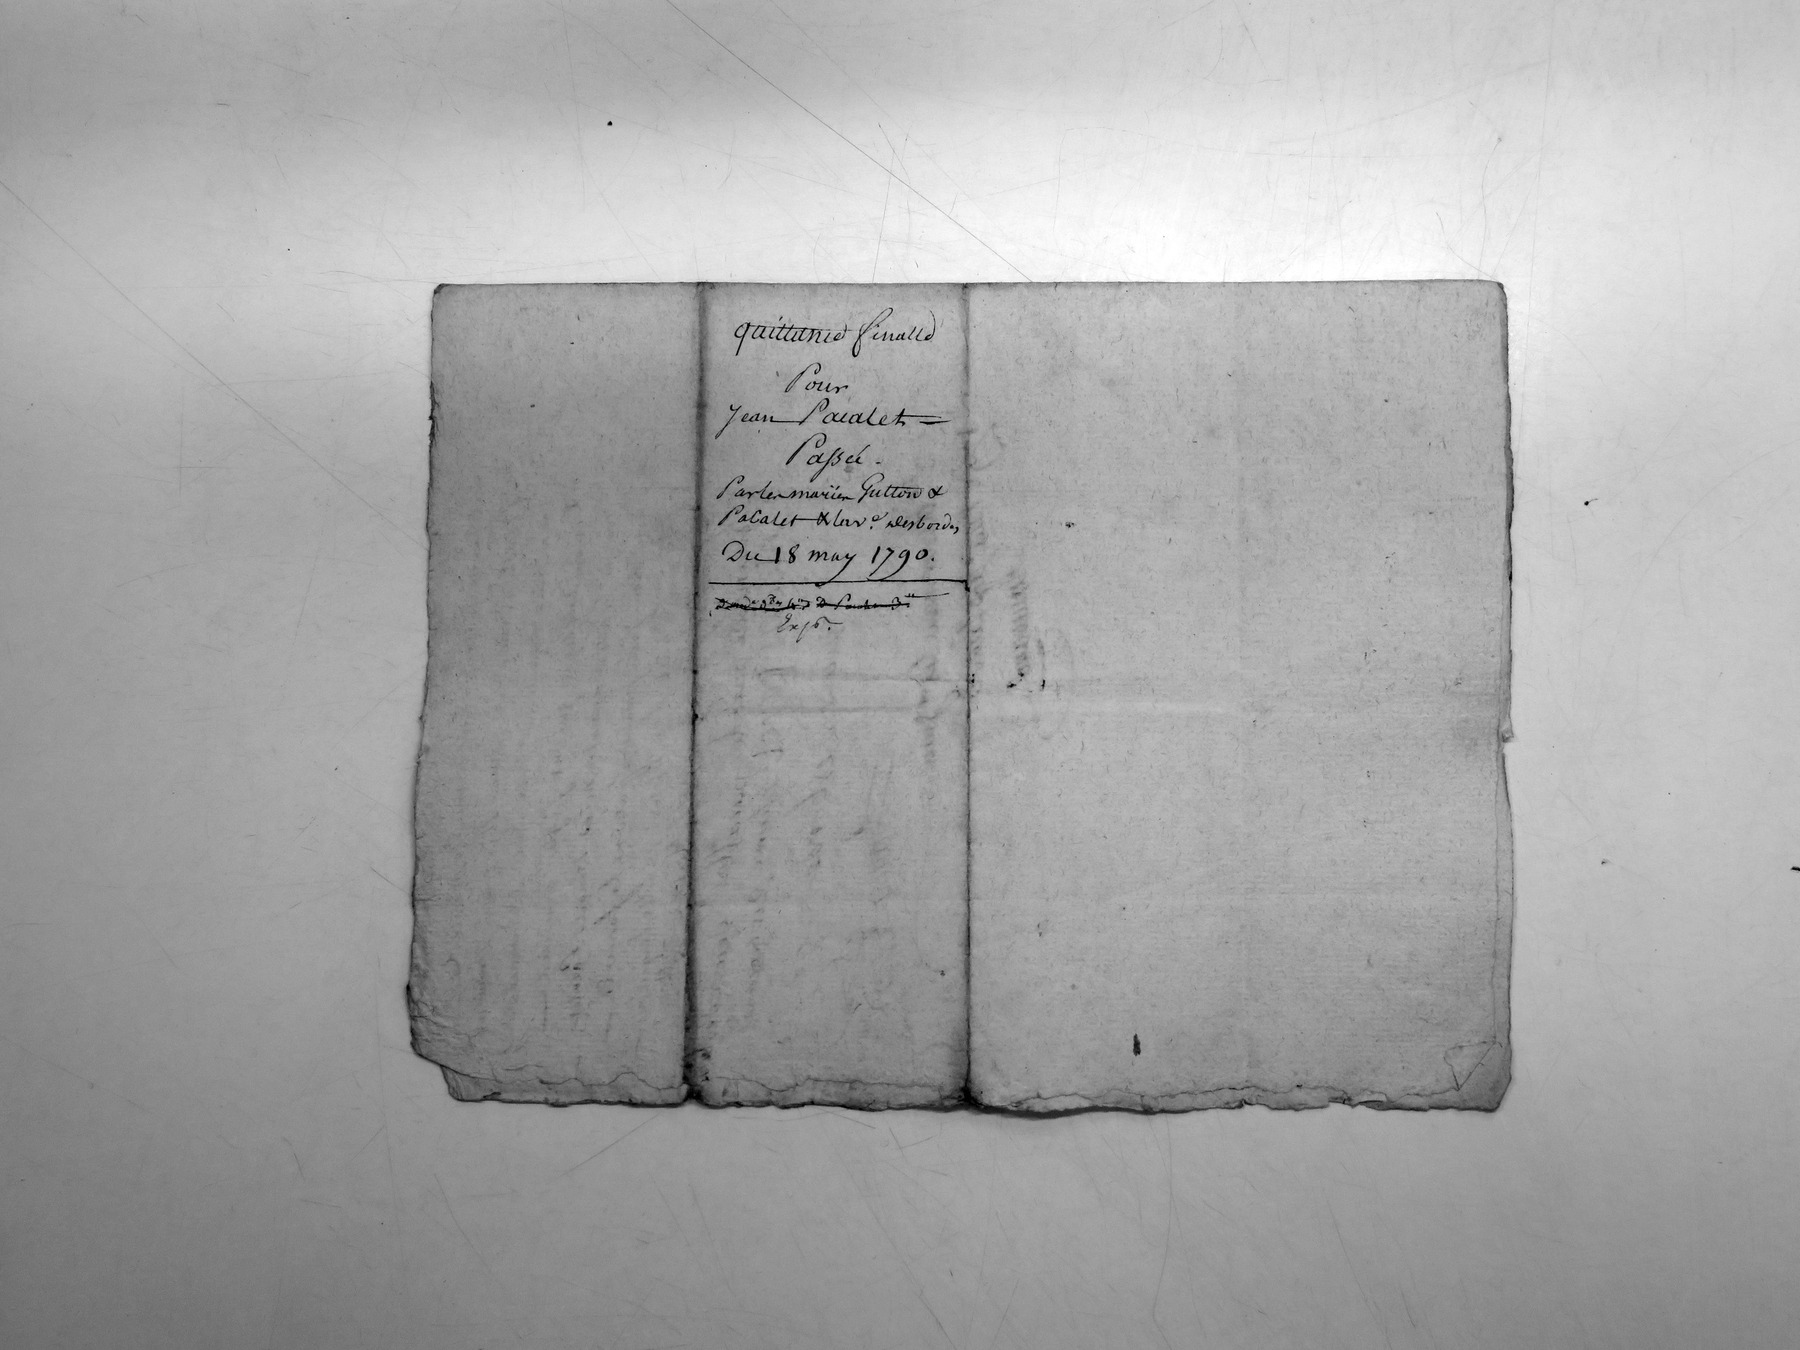 quittance finalle
Pour
Jean Pacalet =
Passée.
Par les mariés Gutton &
Pacalet & le Sr. Desbordes
Du 18 may 1790.
Exp.